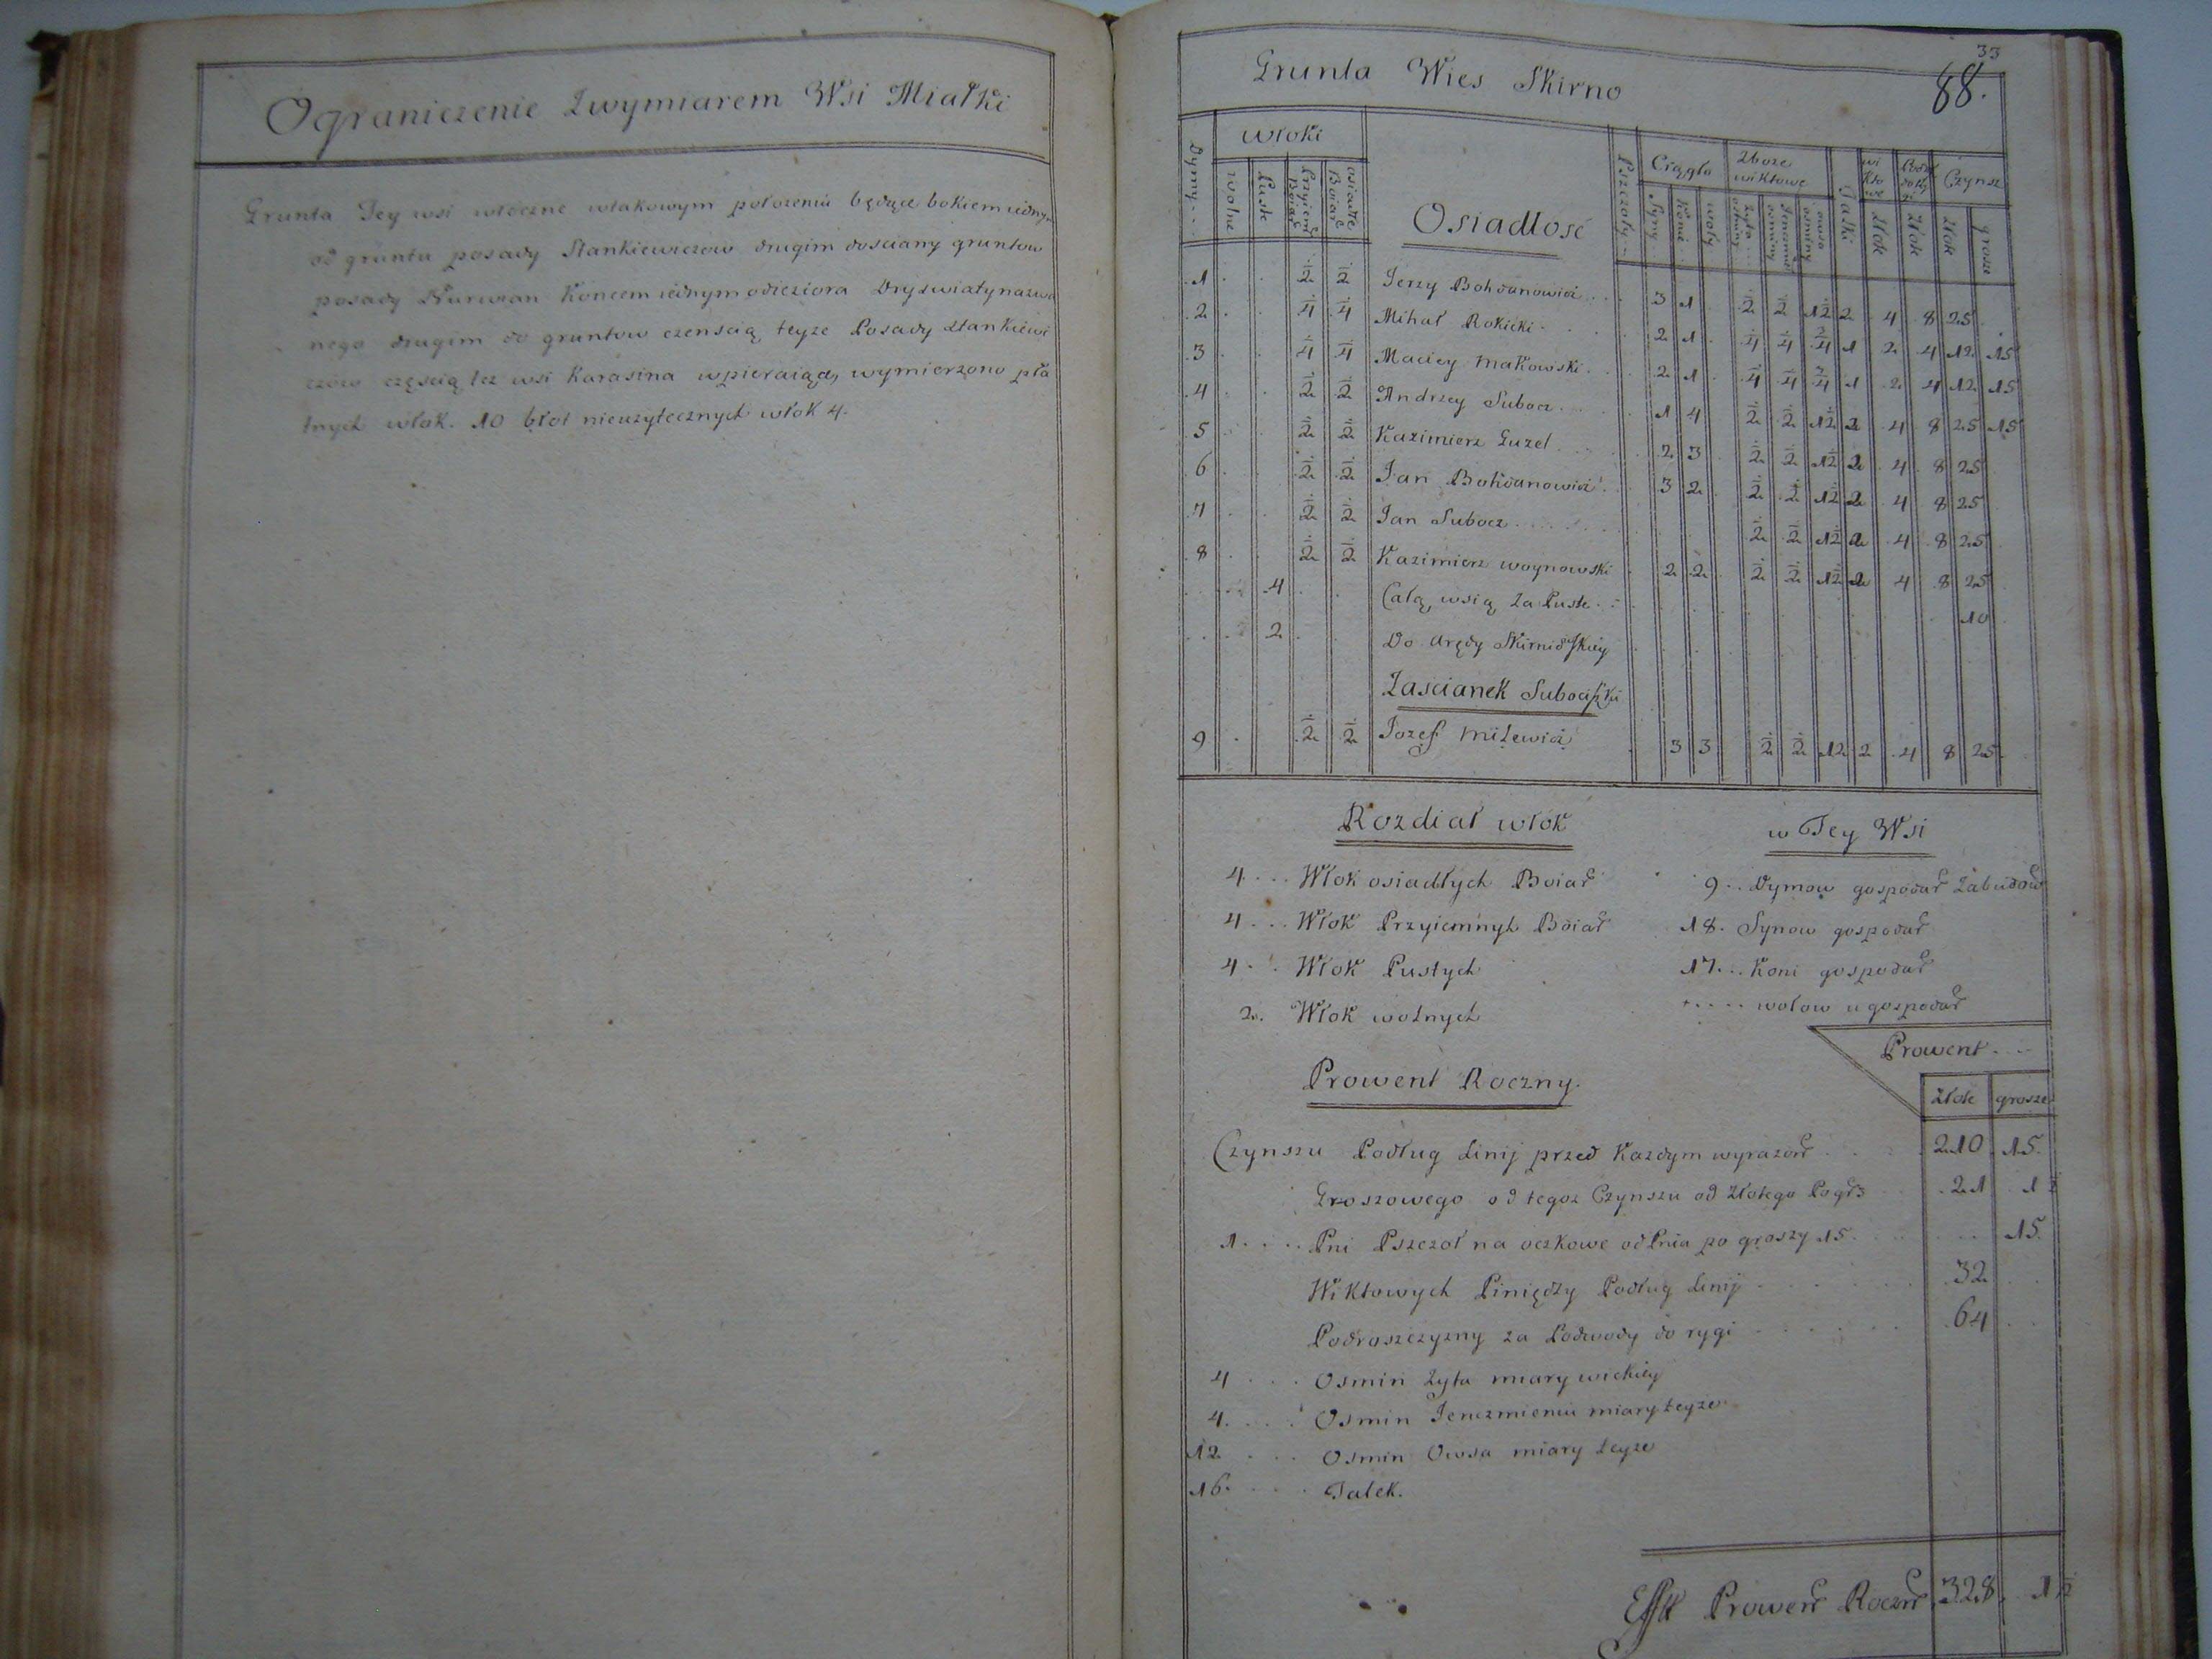 Ograniczenie Zwymiarem Wsi Miałki
Grunta Tey wsi włóczne wtakowym połozeniu będące bokiem iednym
od gruntu posady Stankiewiczow drugim dosciany gruntow
posady Nurwian Koncem iednym odieziora Dryswiaty nazwa
nego drugim do gruntow czenscią teyze Posady Stankiewi
czow częscią tez wsi Karasina wpieraiące, wymierzono pła
tnych włok. 10 błot nieuzytecznych włok 4.
33
88.
Grunta Wies Skirno
Dymy włoki Osiadłosć Pszczoły Ciągła Zboze wiktowe Tałki wi kto we Czynsz
wolne Puste Przyiemn Boiar osiadłe Boiar Syny Konie woły zyta osminy Ienczmien osminy owsa osminy Złok Złok Złok grosze
1 . . ½ ½ Jerzy Bohdanowicz . . 3 1 . ½ ½ 1½ 2 4 8 25 .
2 . . ¼ ¼ Mihał Rokicki . . 2 1 . ¼ ¼ ¾ 1 2 4 12 15
3 . . ¼ ¼ Maciey Makowski . . 2 1 . ¼ ¼ ¾ 1 2 4 12 15
4 . . ½ ½ Andrzey Subocz . . 1 4 . ½ ½ 1½ 2 4 8 25 15
5 . . ½ ½ Kazimierz Guzel . . 2 3 . ½ ½ 1½ 2 4 8 25
6 . . ½ ½ Jan Bohdanowicz . . 3 2 . ½ ½ 1½ 2 4 8 25
7 . . ½ ½ Jan Subocz . . . . ½ ½ 1½ 2 4 8 25
8 . . ½ ½ Kazimierz woynowski . 2 2 . ½ ½ 1½ 2 4 8 25
. . 4 . . Całą wsią za Puste . . 10
. . 2 . . Do Arędy Skirnidskiey
Zascianek Subociszki
9 . ½ ½ Jozef Milewicz . 3 3 ½ ½ 1½ 2 4 8 25
Rozdiał włók
w Tey Wsi
4 . . . Włok osiadłych Boiar
9 . . Dymow gospodar Zabudow
4 . . . Włok Przyiemnyh Boiar
18. Synow gospodar
4 . . Włok Pustych
17 . . . Koni gospodar
2 . . Włok wolnych
. . . . . wołow u gospodar
Prowent . . .
Prowent Roczny.
Złote grosze
Czynszu Podług Linij przed Kazdym wyrazon . . . 210 15.
Groszowego od tegoz Czynszu od złotego Po gr 3 . . 21 1½
1 . . . . Pni Pszczoł na oczkowe od Pnia po groszy 15 . . . . 15.
Wiktowych Piniędzy Podług Linij . . . . 32 . .
Podroszczyzny za Podwody do rygi . . . . . 64 . .
4 . . . Osmin Zyta miary wickiey
4. . . . Osmin Jenczmieniu miary teyze
12 . . . Osmin Owsa miary teyze
16. . . . Talek.
Prowent Roczn 328. 1½